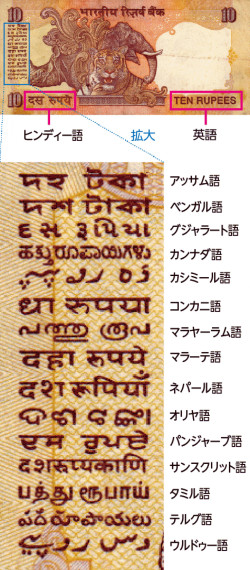 भारतीय रिज़र्व बैंक
10 दस रुपये TEN RUPEES 10
ヒンディー語 拡大 英語
দহ টকা アッサム語
দশ টাকা ベンガル語
દસ રૂપિયા グジャラート語
ಹತ್ತು ರೂಪಾಯಿಗಳು カンナダ語
カシミール語
धा रुपया コンカニ語
പത്തു രൂപ マラヤーラム語
दहा रुपये マラーテ語
दश रुपियाँ ネパール語
オリヤ語
ਦਸ ਰੁਪਏ パンジャーブ語
दशरूप्यकाणि サンスクリット語
பத்து ரூபாய் タミル語
పది రూపాయలు テルグ語
ウルドゥー語